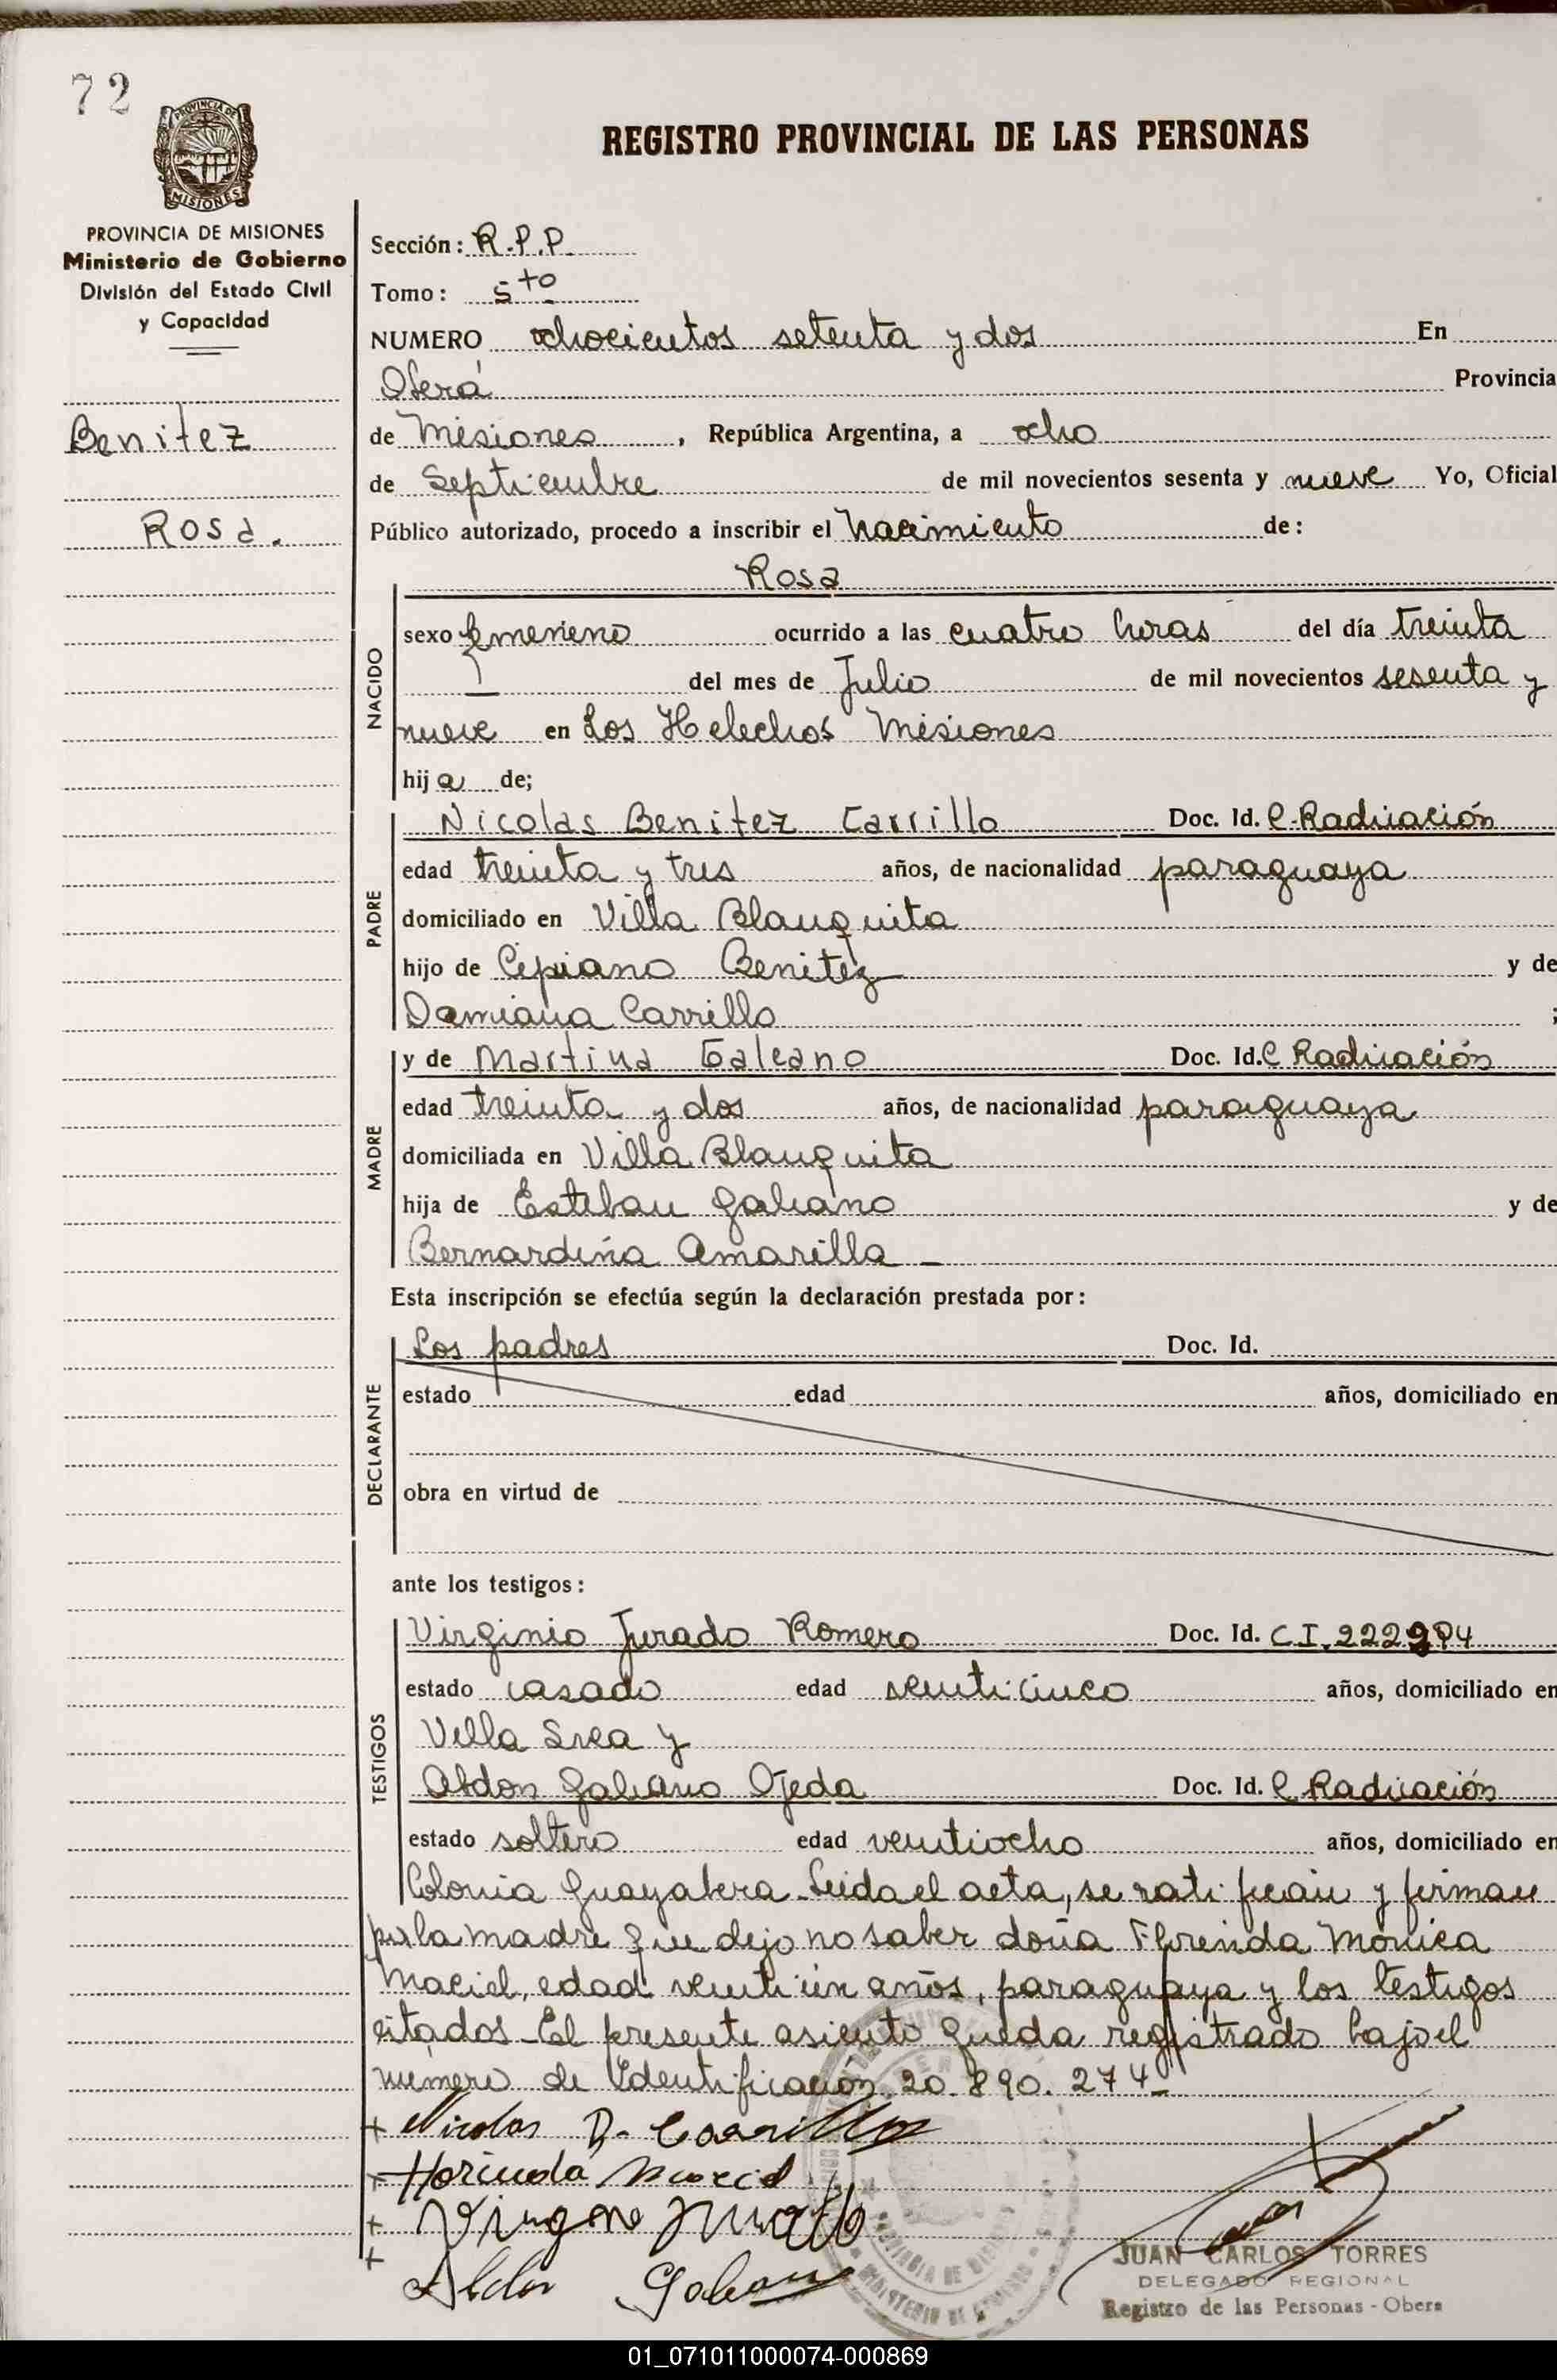 72
PROVINCIA DE
MISIONES
REGISTRO PROVINCIAL DE LAS PERSONAS
PROVINCIA DE MISIONES
Ministerio de Gobierno
División del Estado Civil
y Capacidad
Benitez
Rosa.
Sección: R.P.P.
Tomo: 5to
NUMERO ochocientos setenta y dos En
Oberá Provincia
de Misiones, República Argentina, a ocho
de Septiembre de mil novecientos sesenta y nueve Yo, Oficial
Público autorizado, procedo a inscribir el Nacimiento de:
Rosa
NACIDO
sexo femenino ocurrido a las cuatro horas del día treinta
del mes de Julio de mil novecientos sesenta y
nueve en Los Helechos Misiones
hija de;
PADRE
Nicolas Benitez Carrillo Doc. Id. C. Radicación
edad treinta y tres años, de nacionalidad paraguaya
domiciliado en Villa Blanquita
hijo de Cipiano Benitez y de
Damiana Carrillo ;
MADRE
y de Martina Galeano Doc. Id. C Radicación
edad treinta y dos años, de nacionalidad paraguaya
domiciliada en Villa Blanquita
hija de Esteban Galeano y de
Bernardina Amarilla
Esta inscripción se efectúa según la declaración prestada por:
DECLARANTE
Los padres Doc. Id.
estado edad años, domiciliado en
obra en virtud de
ante los testigos:
TESTIGOS
Virginio Jurado Romero Doc. Id. C.I. 222994
estado casado edad veinticinco años, domiciliado en
Villa Svea y
Abdon Galeano Ojeda Doc. Id. C Radicación
estado soltero edad veintiocho años, domiciliado en
Colonia Guayabera. Leida el acta, se ratifican y firman
por la madre que dejo no saber doña Florinda Monica
Maciel, edad veintiun años, paraguaya y los testigos
citados. El presente asiento queda registrado bajo el
número de Identificación 20.890.274
+ Nicolas B. Carrillo
+ Florinda Maciel
+
+ Abdon Galeano
JUAN CARLOS TORRES
DELEGADO REGIONAL
Registro de las Personas - Obera
01_071011000074-000869